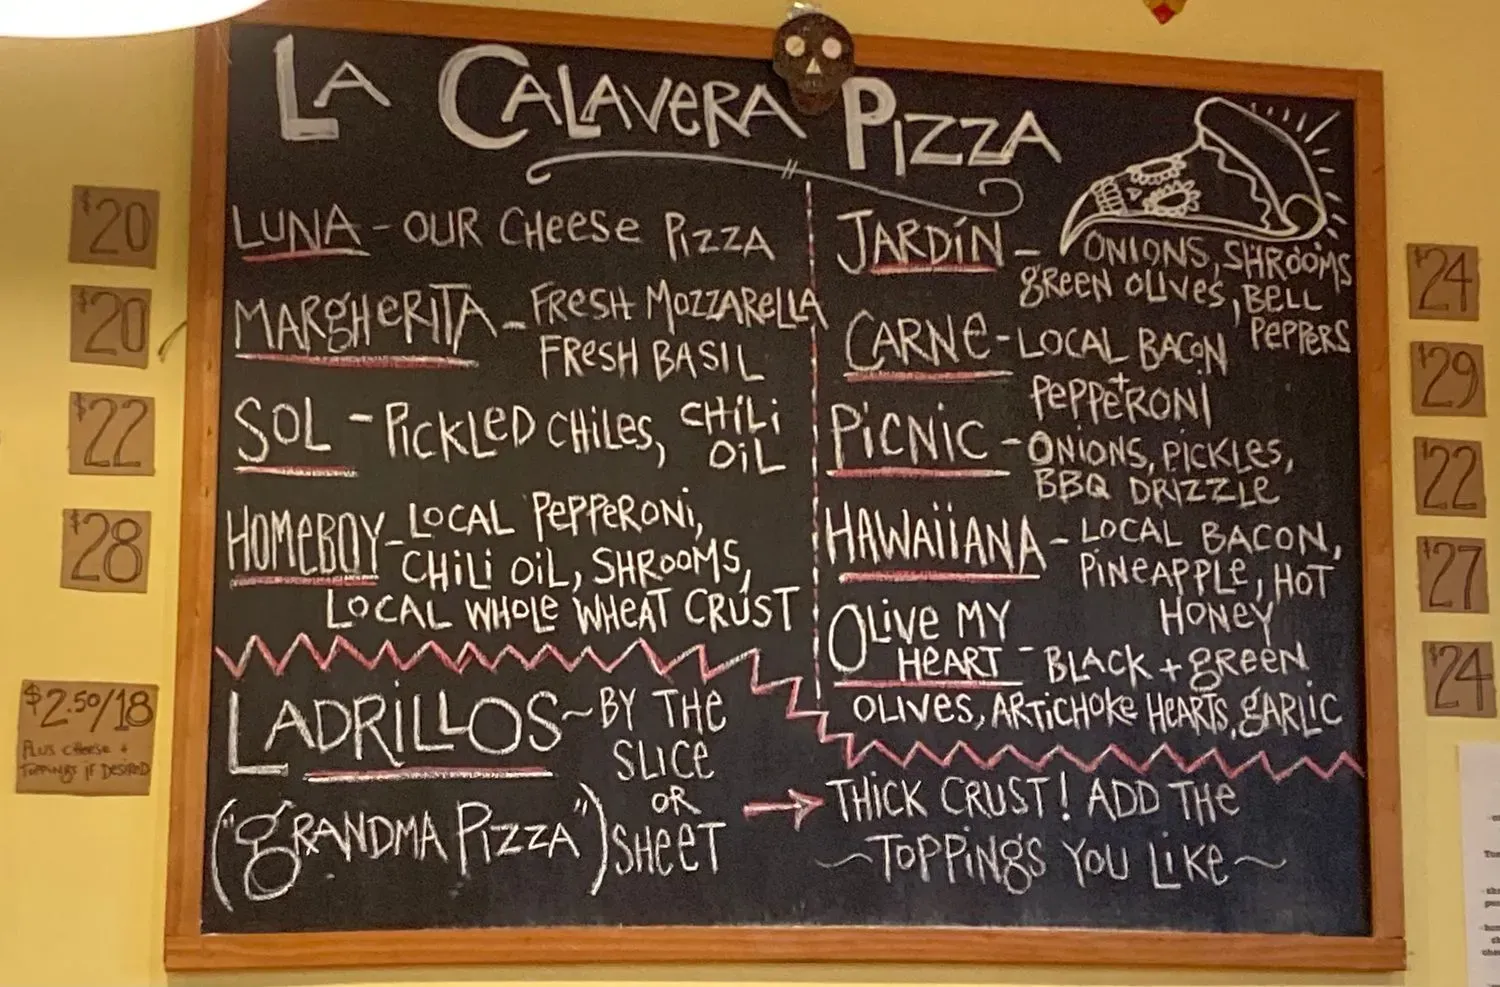 LA CALAVERA PIZZA
$20
LUNA - OUR CHEESE PIZZA
$20
MARGHERITA - FRESH MOZZARELLA
FRESH BASIL
$22
SOL - PICKLED CHILES, CHILI
OIL
$28
HOMEBOY - LOCAL PEPPERONI,
CHILI OIL, SHROOMS,
LOCAL WHOLE WHEAT CRUST
JARDÍN - ONIONS, SHROOMS
GREEN OLIVES, BELL
PEPPERS
$24
CARNE - LOCAL BACON
+
PEPPERONI
$29
PICNIC - ONIONS, PICKLES,
BBQ DRIZZLE
$22
HAWAIIANA - LOCAL BACON,
PINEAPPLE, HOT
HONEY
$27
OLIVE MY
HEART - BLACK + GREEN
OLIVES, ARTICHOKE HEARTS, GARLIC
$24
$2.50/18
PLUS CHEESE +
TOPPINGS IF DESIRED
LADRILLOS ~ BY THE
SLICE
OR
SHEET
("GRANDMA PIZZA")
→ THICK CRUST! ADD THE
~TOPPINGS YOU LIKE~